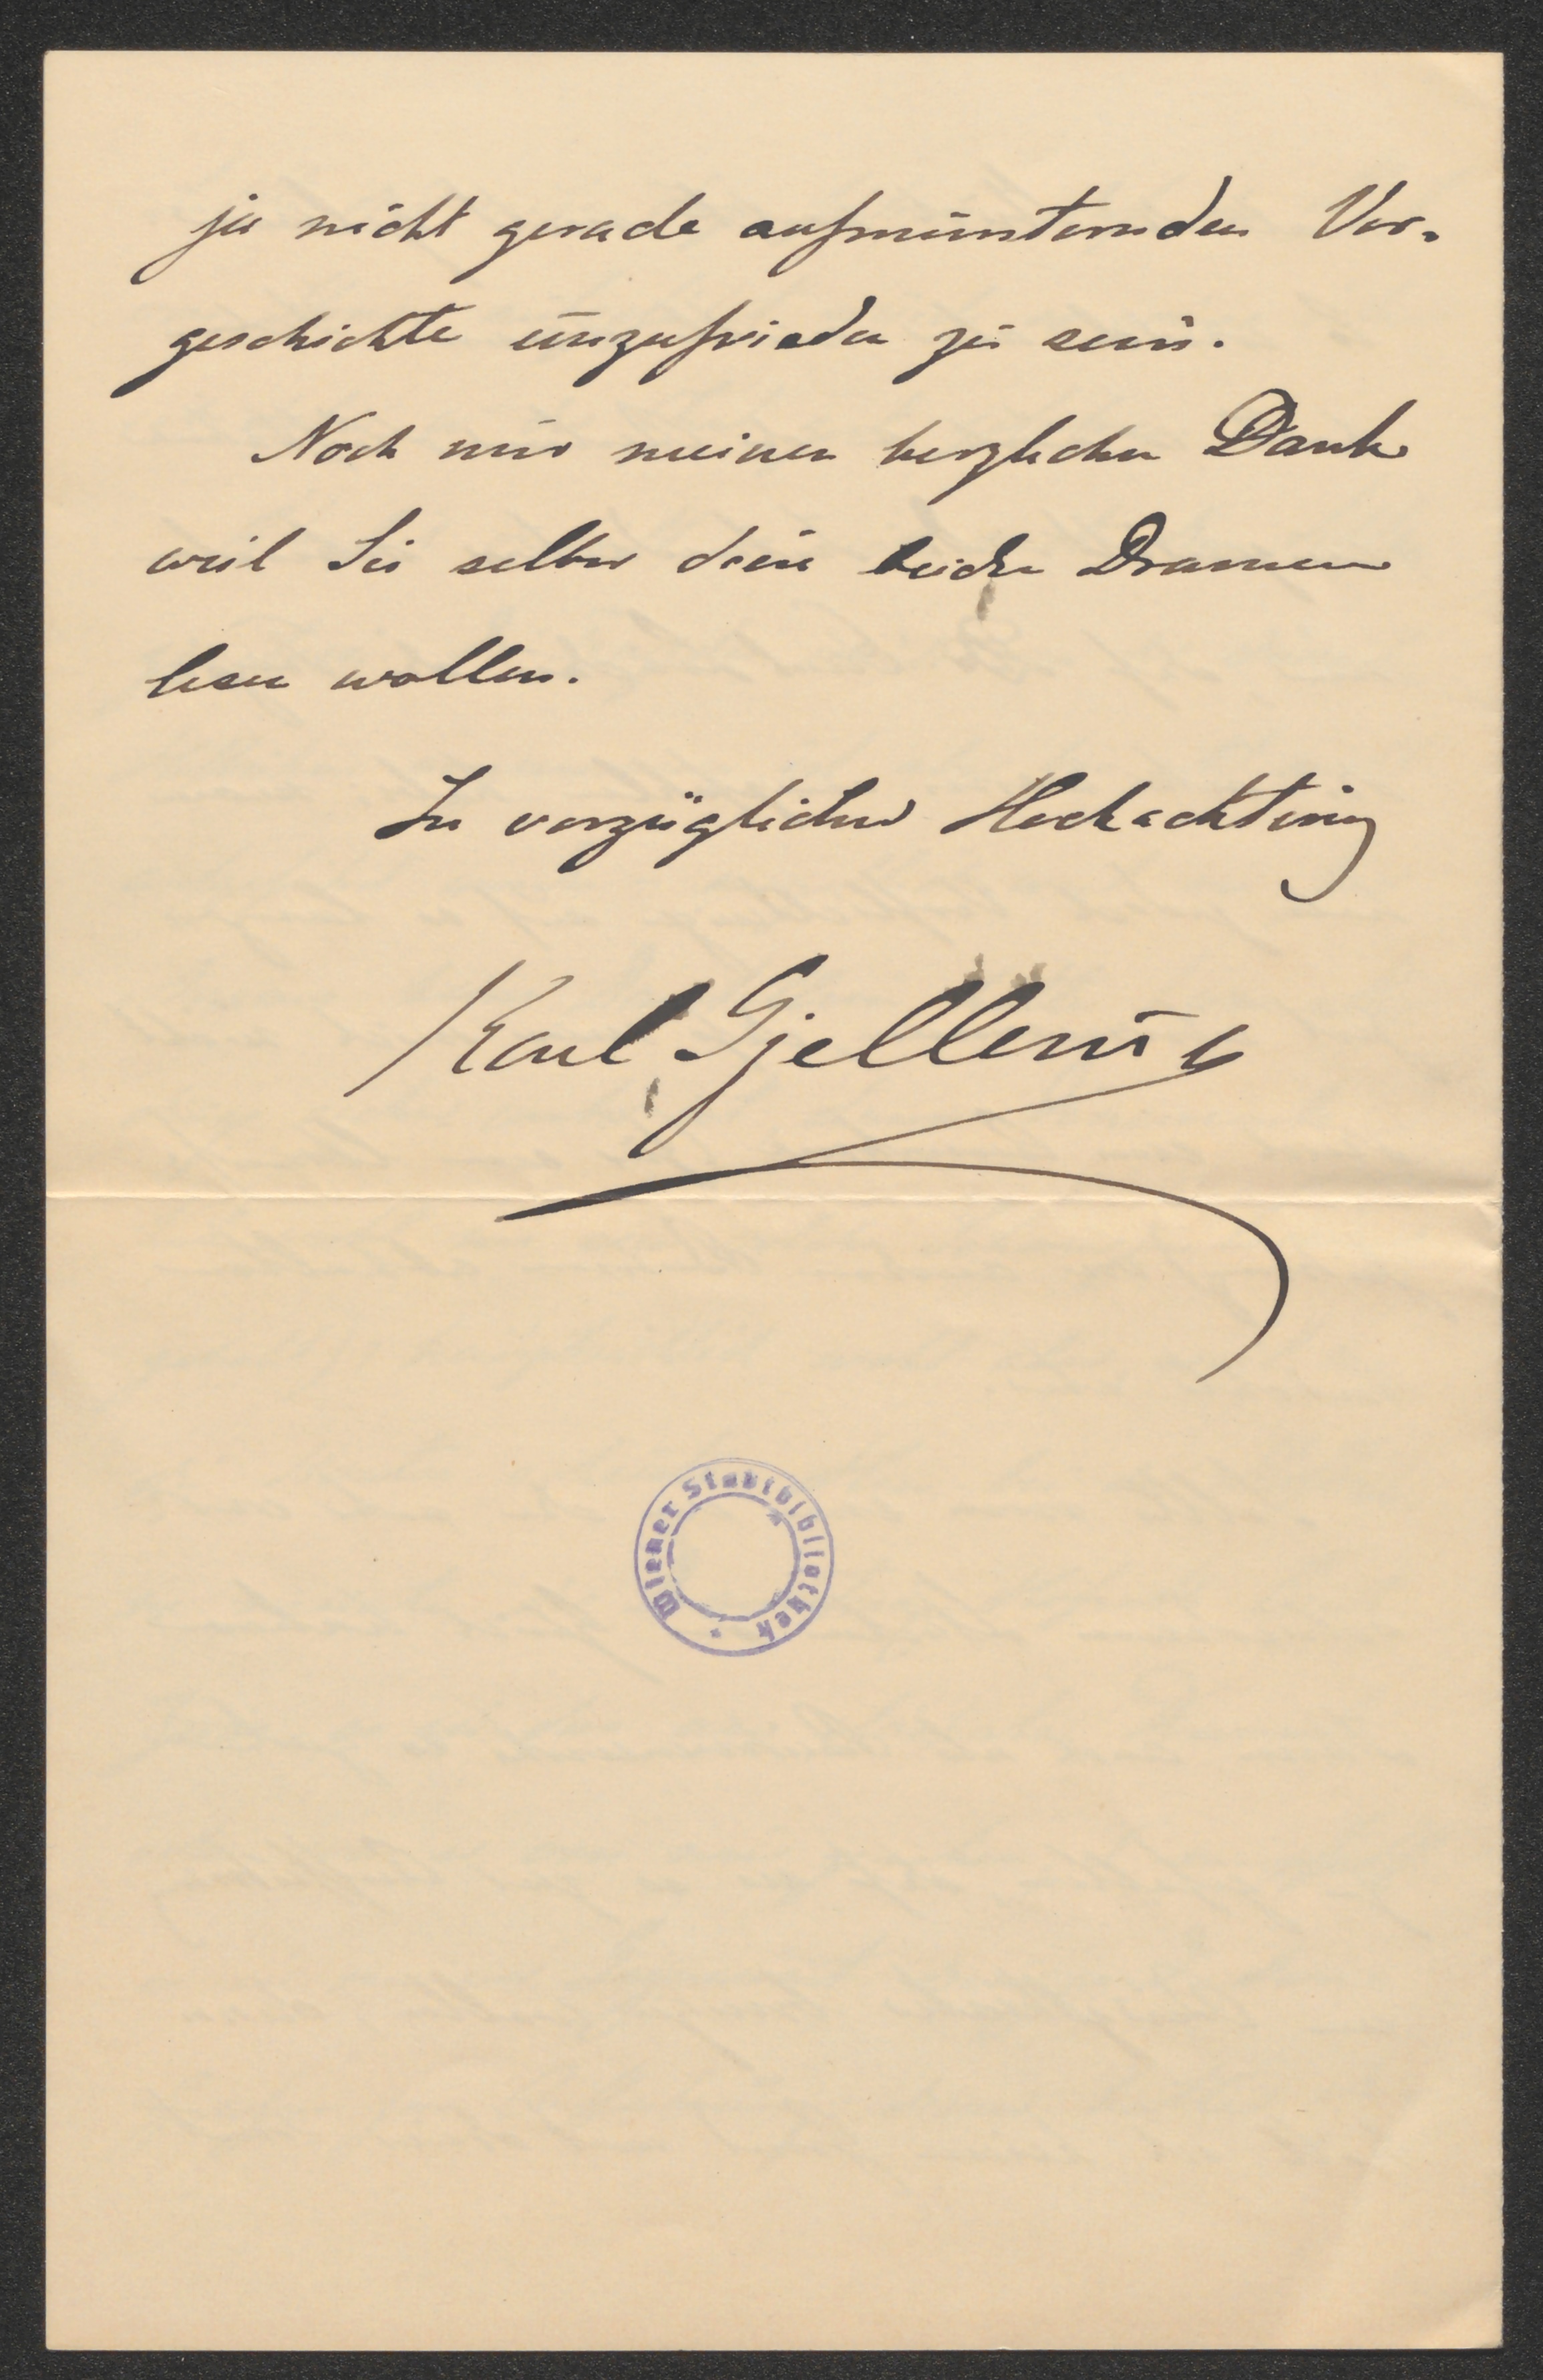 ja nicht gerade aufmunternden Vor-
geschichte unzufrieden zu sein.
Noch nur meinen herzlichen Dank
weil Sie selber diese beiden Dramen
lesen wollen.
In vorzüglicher Hochachtung
Karl Gjellerup
Wiener Stadtbibliothek